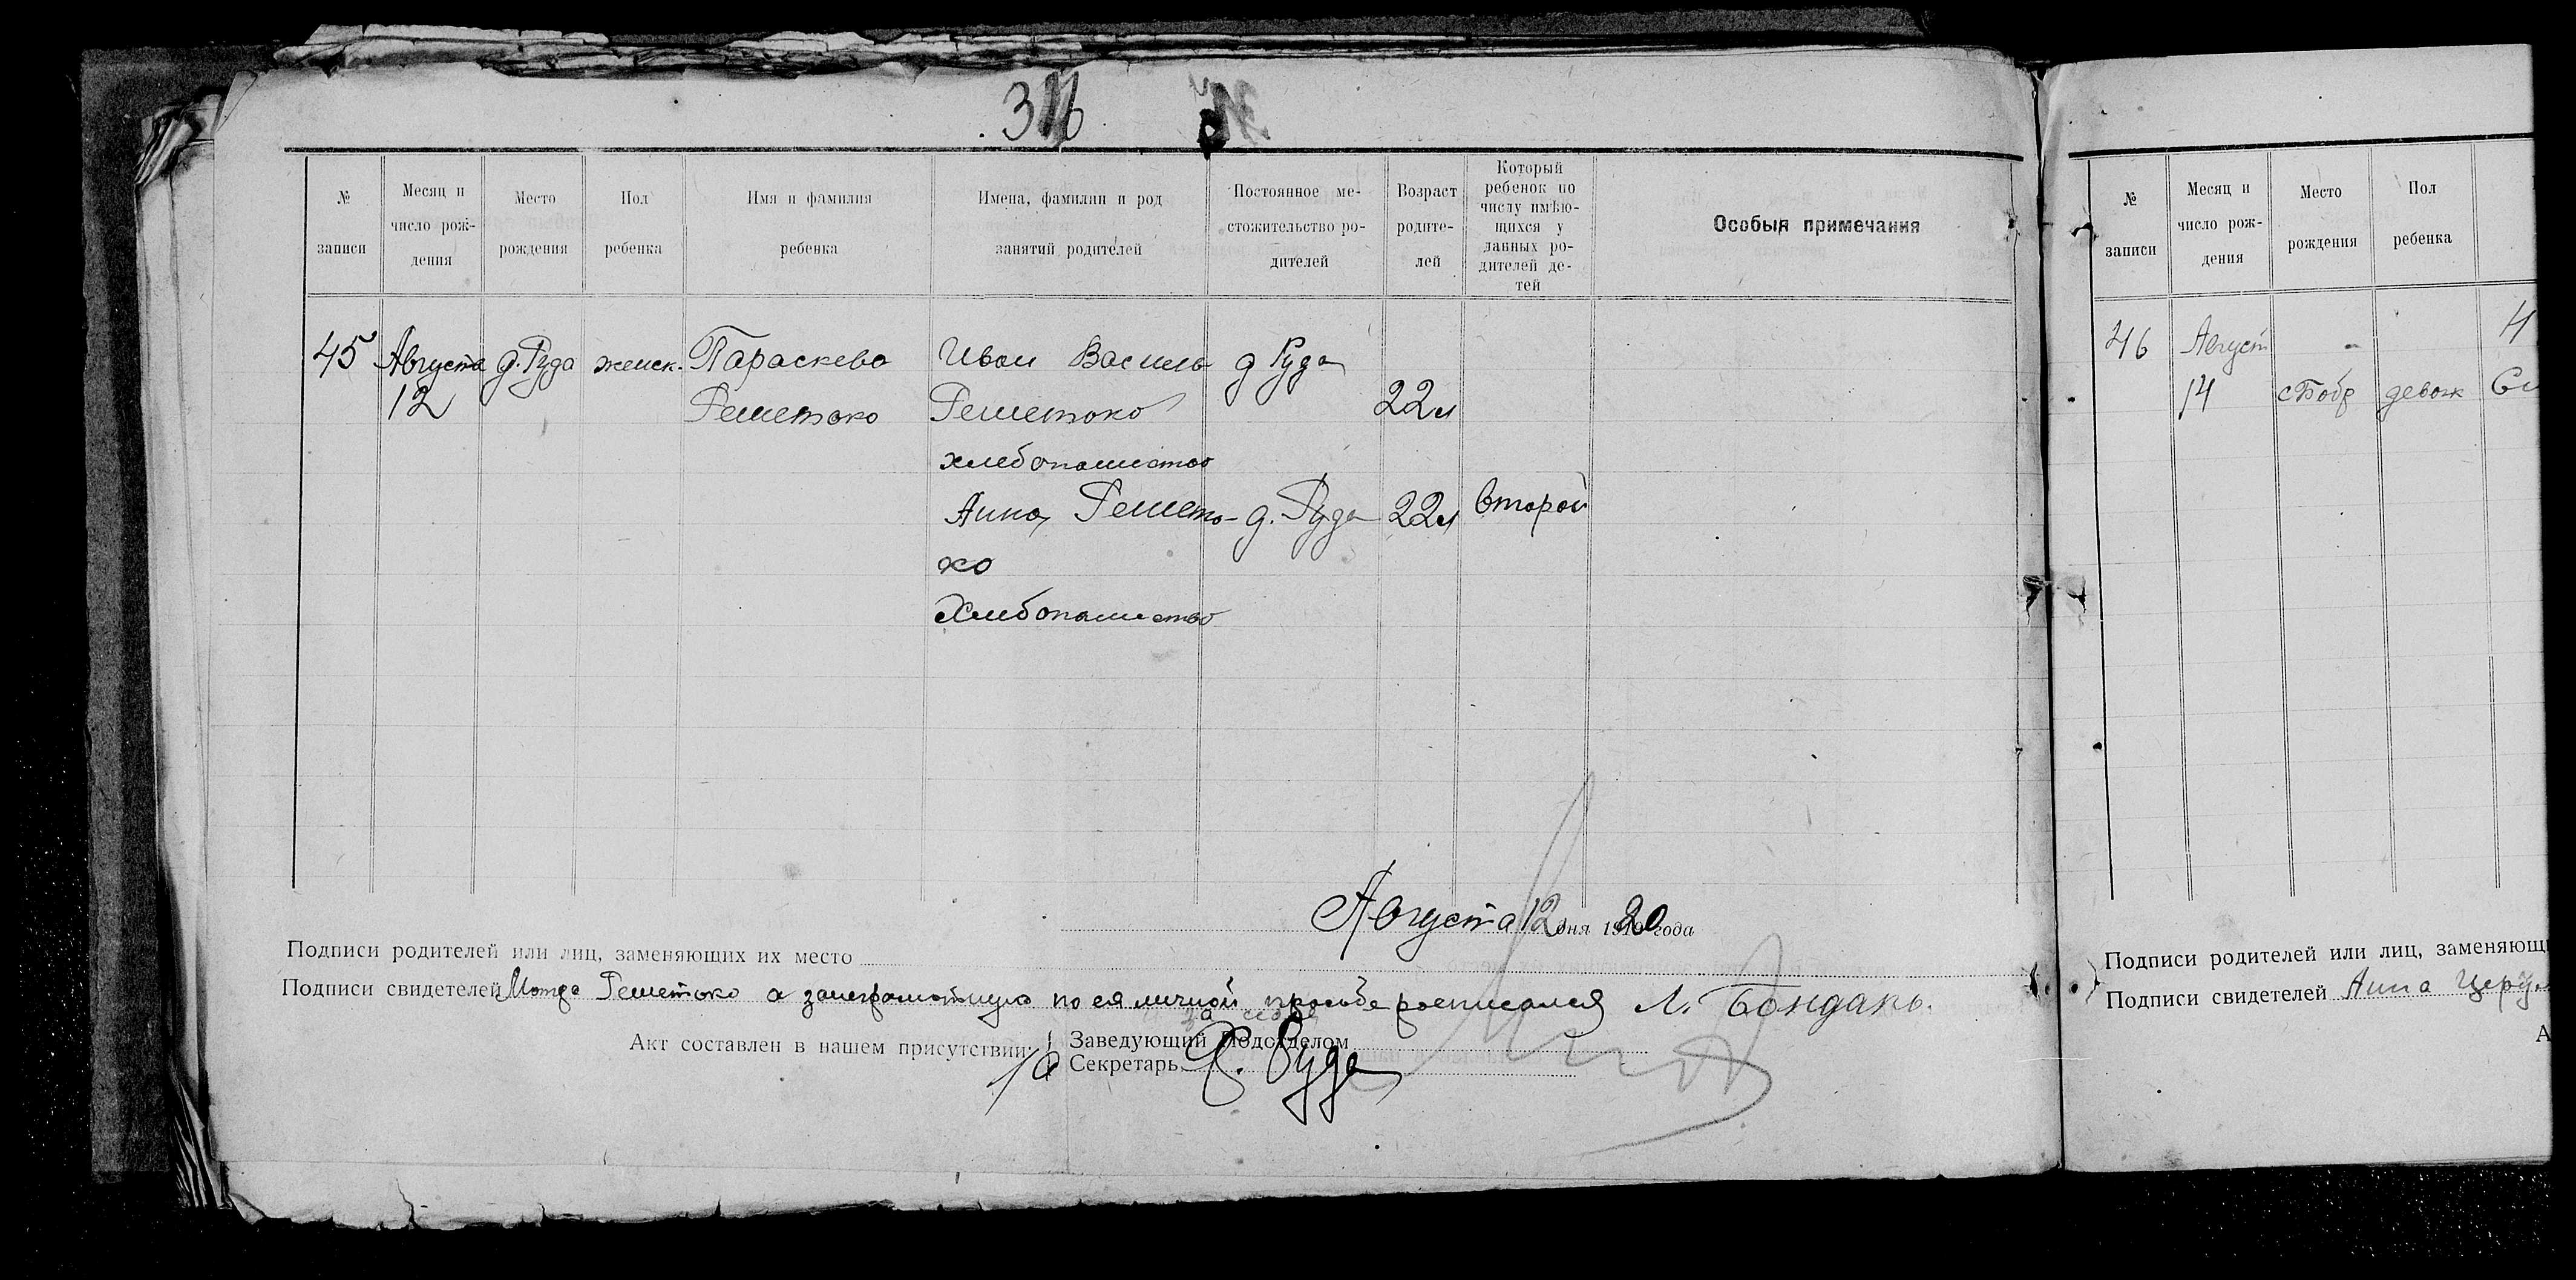 316
№ записи
Месяц и число рож-дения
Место рождения
Пол ребенка
Имя и фамилия ребенка
Имена, фамилии и род занятий родителей
Постоянное ме-стожительство ро-дителей
Возраст родите-лей
Который ребенок по числу имѣю-щихся у данных ро-дителей де-тей
Особыя примечания
45 Августа д. Руда женск. Параскева Иван Василь д Руда
12 Решетоко Решетоко 22 л
хлебопашество
Анна Решето- д. Руда 22 л второй
ко
Хлебопашество
Августа 12 дня 1920 года
Подписи родителей или лиц, заменяющих их место
Подписи свидетелей Решетоко а за неграмотную по ея личной просьбе росписался Л. Бондарь.
Акт составлен в нашем присутствии:
Заведующий Подотделом
Секретарь Руда
№ записи
Месяц и число рож-дения
Место рождения
Пол ребенка
46 Август
14 с Бобр девоч
Подписи родителей или лиц, заменяющ
Подписи свидетелей Анна
А